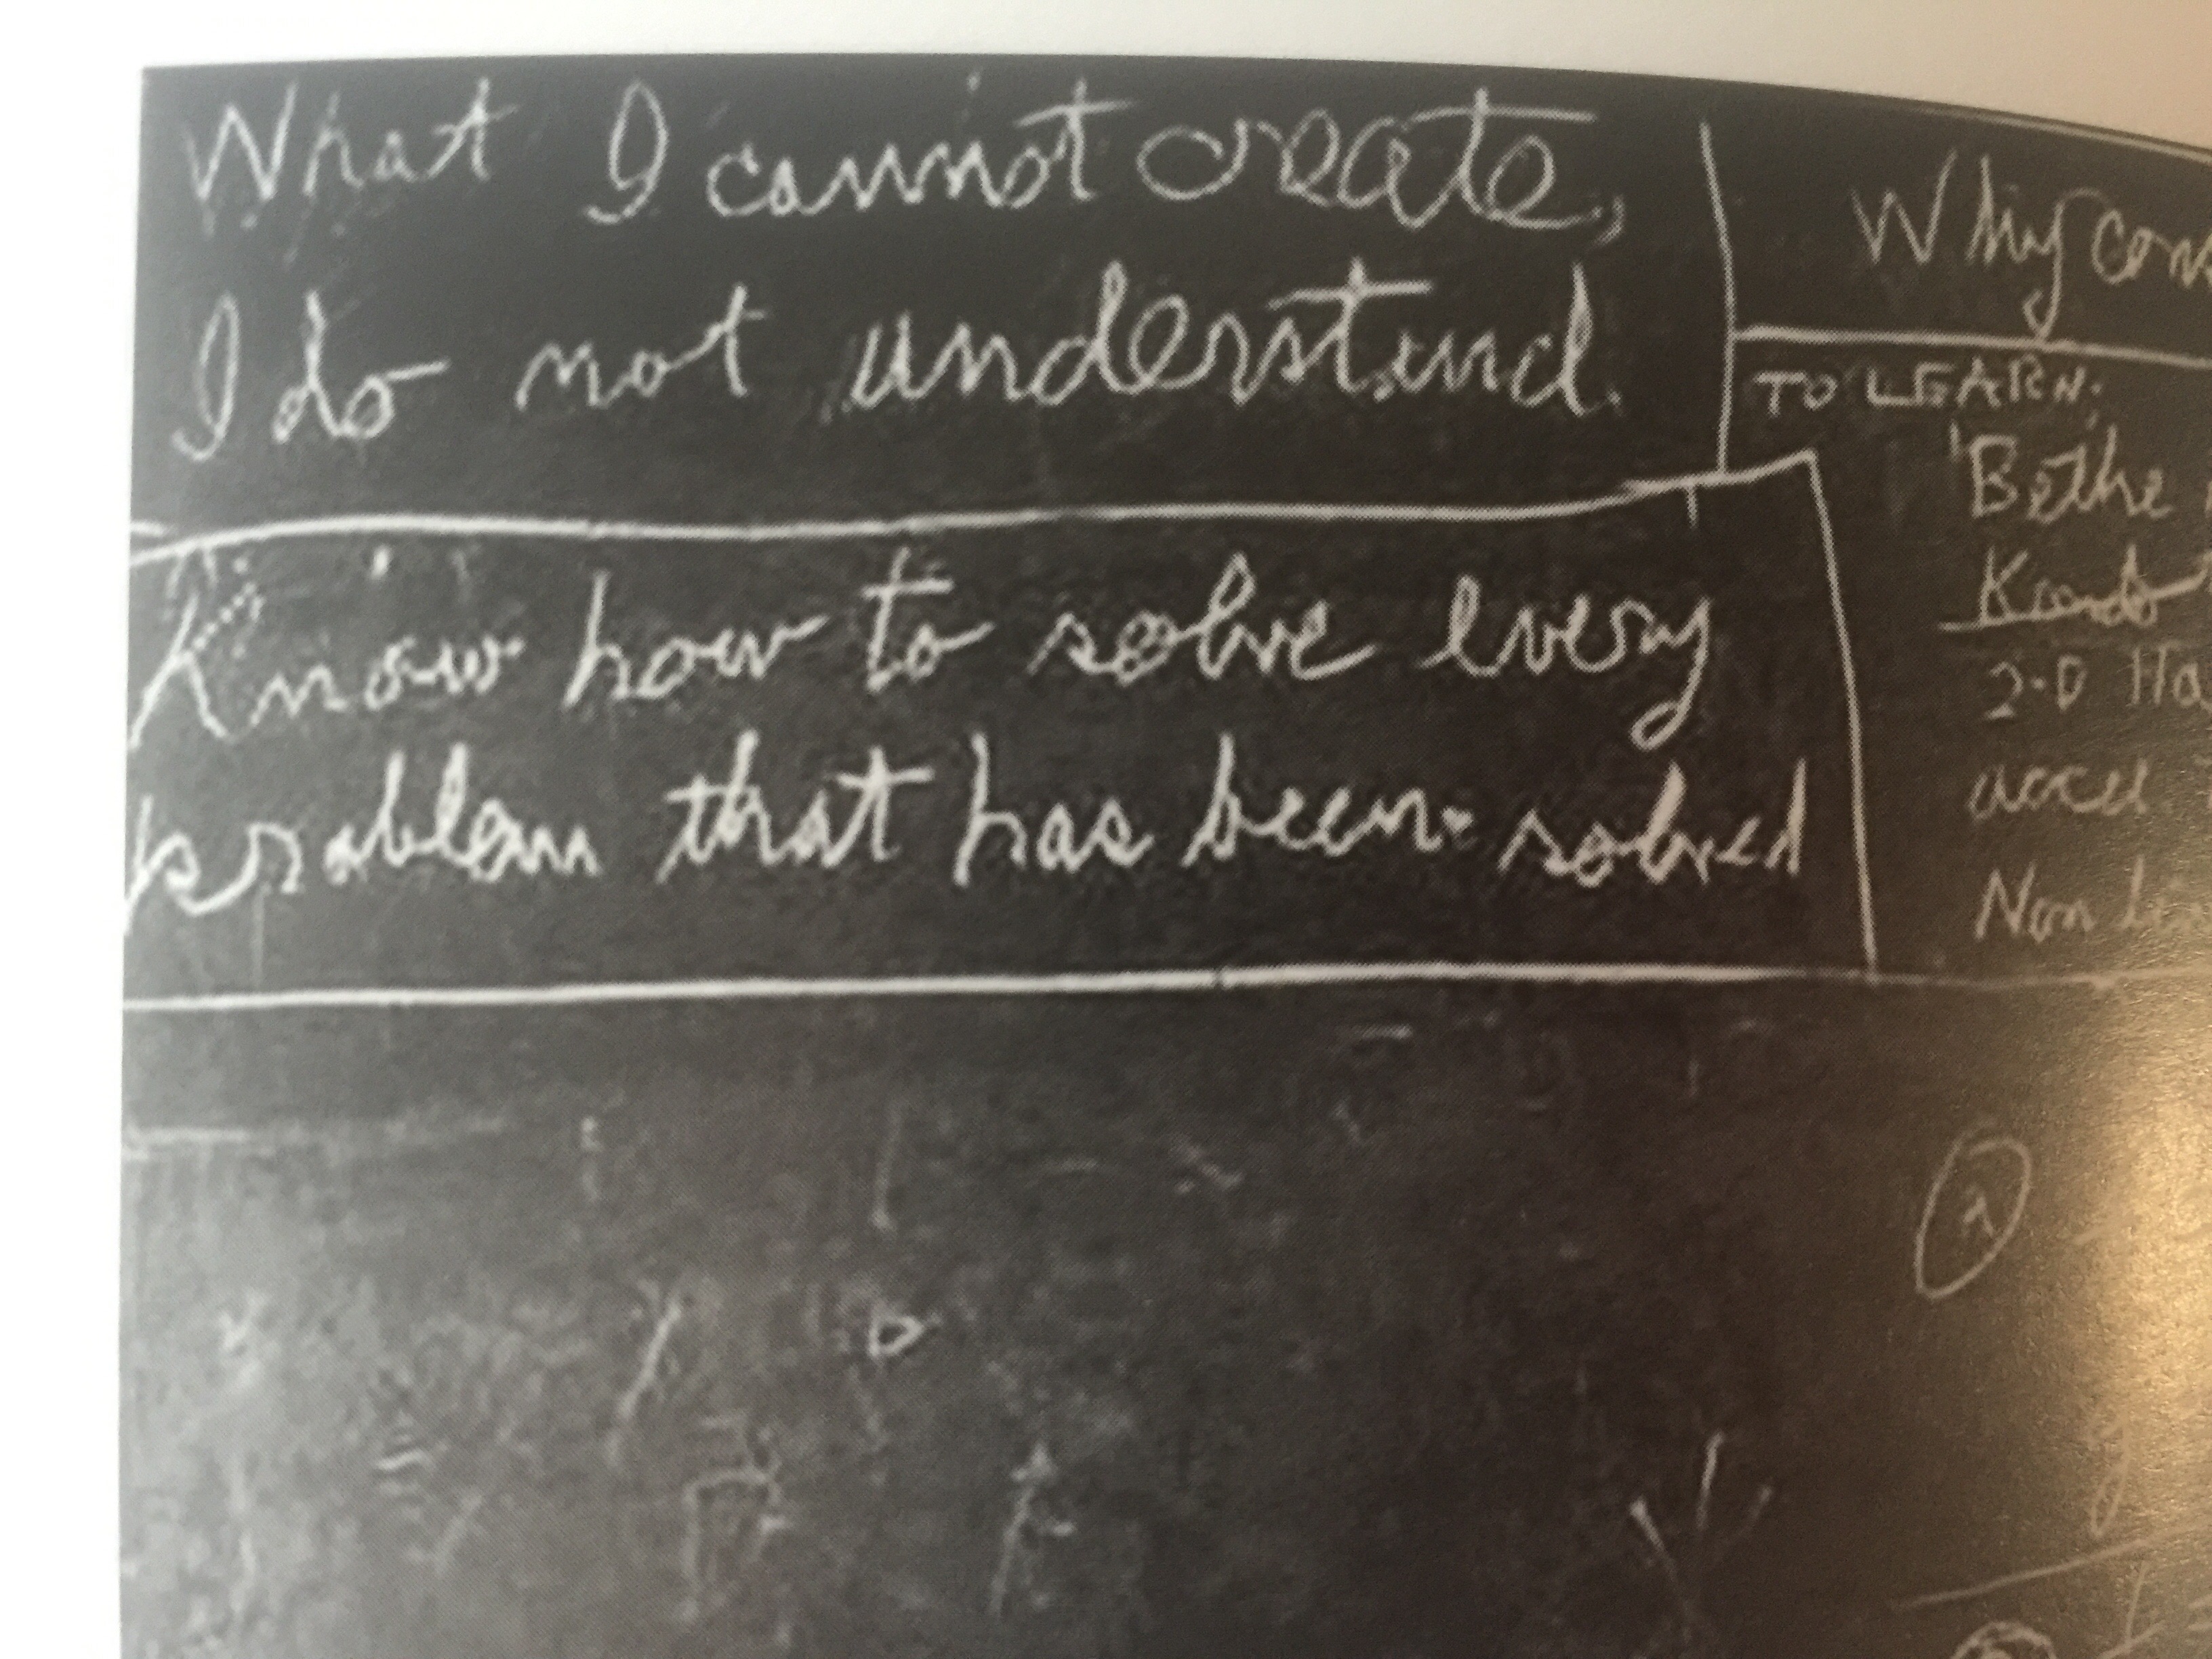 What I cannot create,
I do not understand.
Know how to solve every
problem that has been solved
Why cons
TO LEARN:
Bethe
2-D Ha
accel
Non Lin